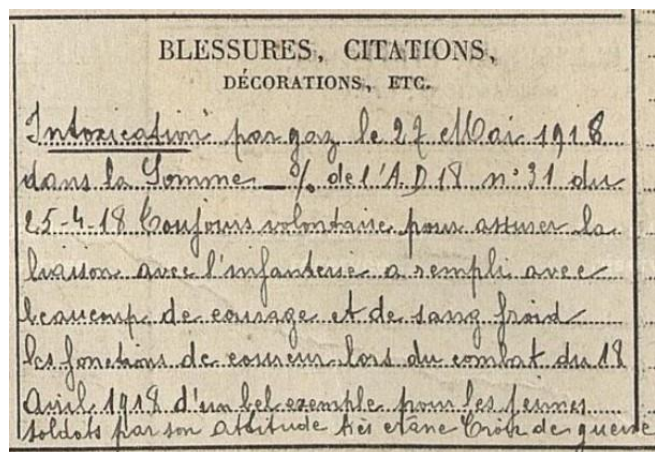 BLESSURES, CITATIONS,
DÉCORATIONS, ETC.
Intoxication par gaz le 27 Mai 1918
dans la Somme _ % de l'A.D 18 n° 31 du
25-4-18 Toujours volontaire pour assurer la
liaison avec l'infanterie a rempli avec
beaucoup de courage et de sang froid
les fonctions de coureur lors du combat du 18
Avril 1918 d'un bel exemple pour les jeunes
soldats par son attitude très crâne Croix de guerre